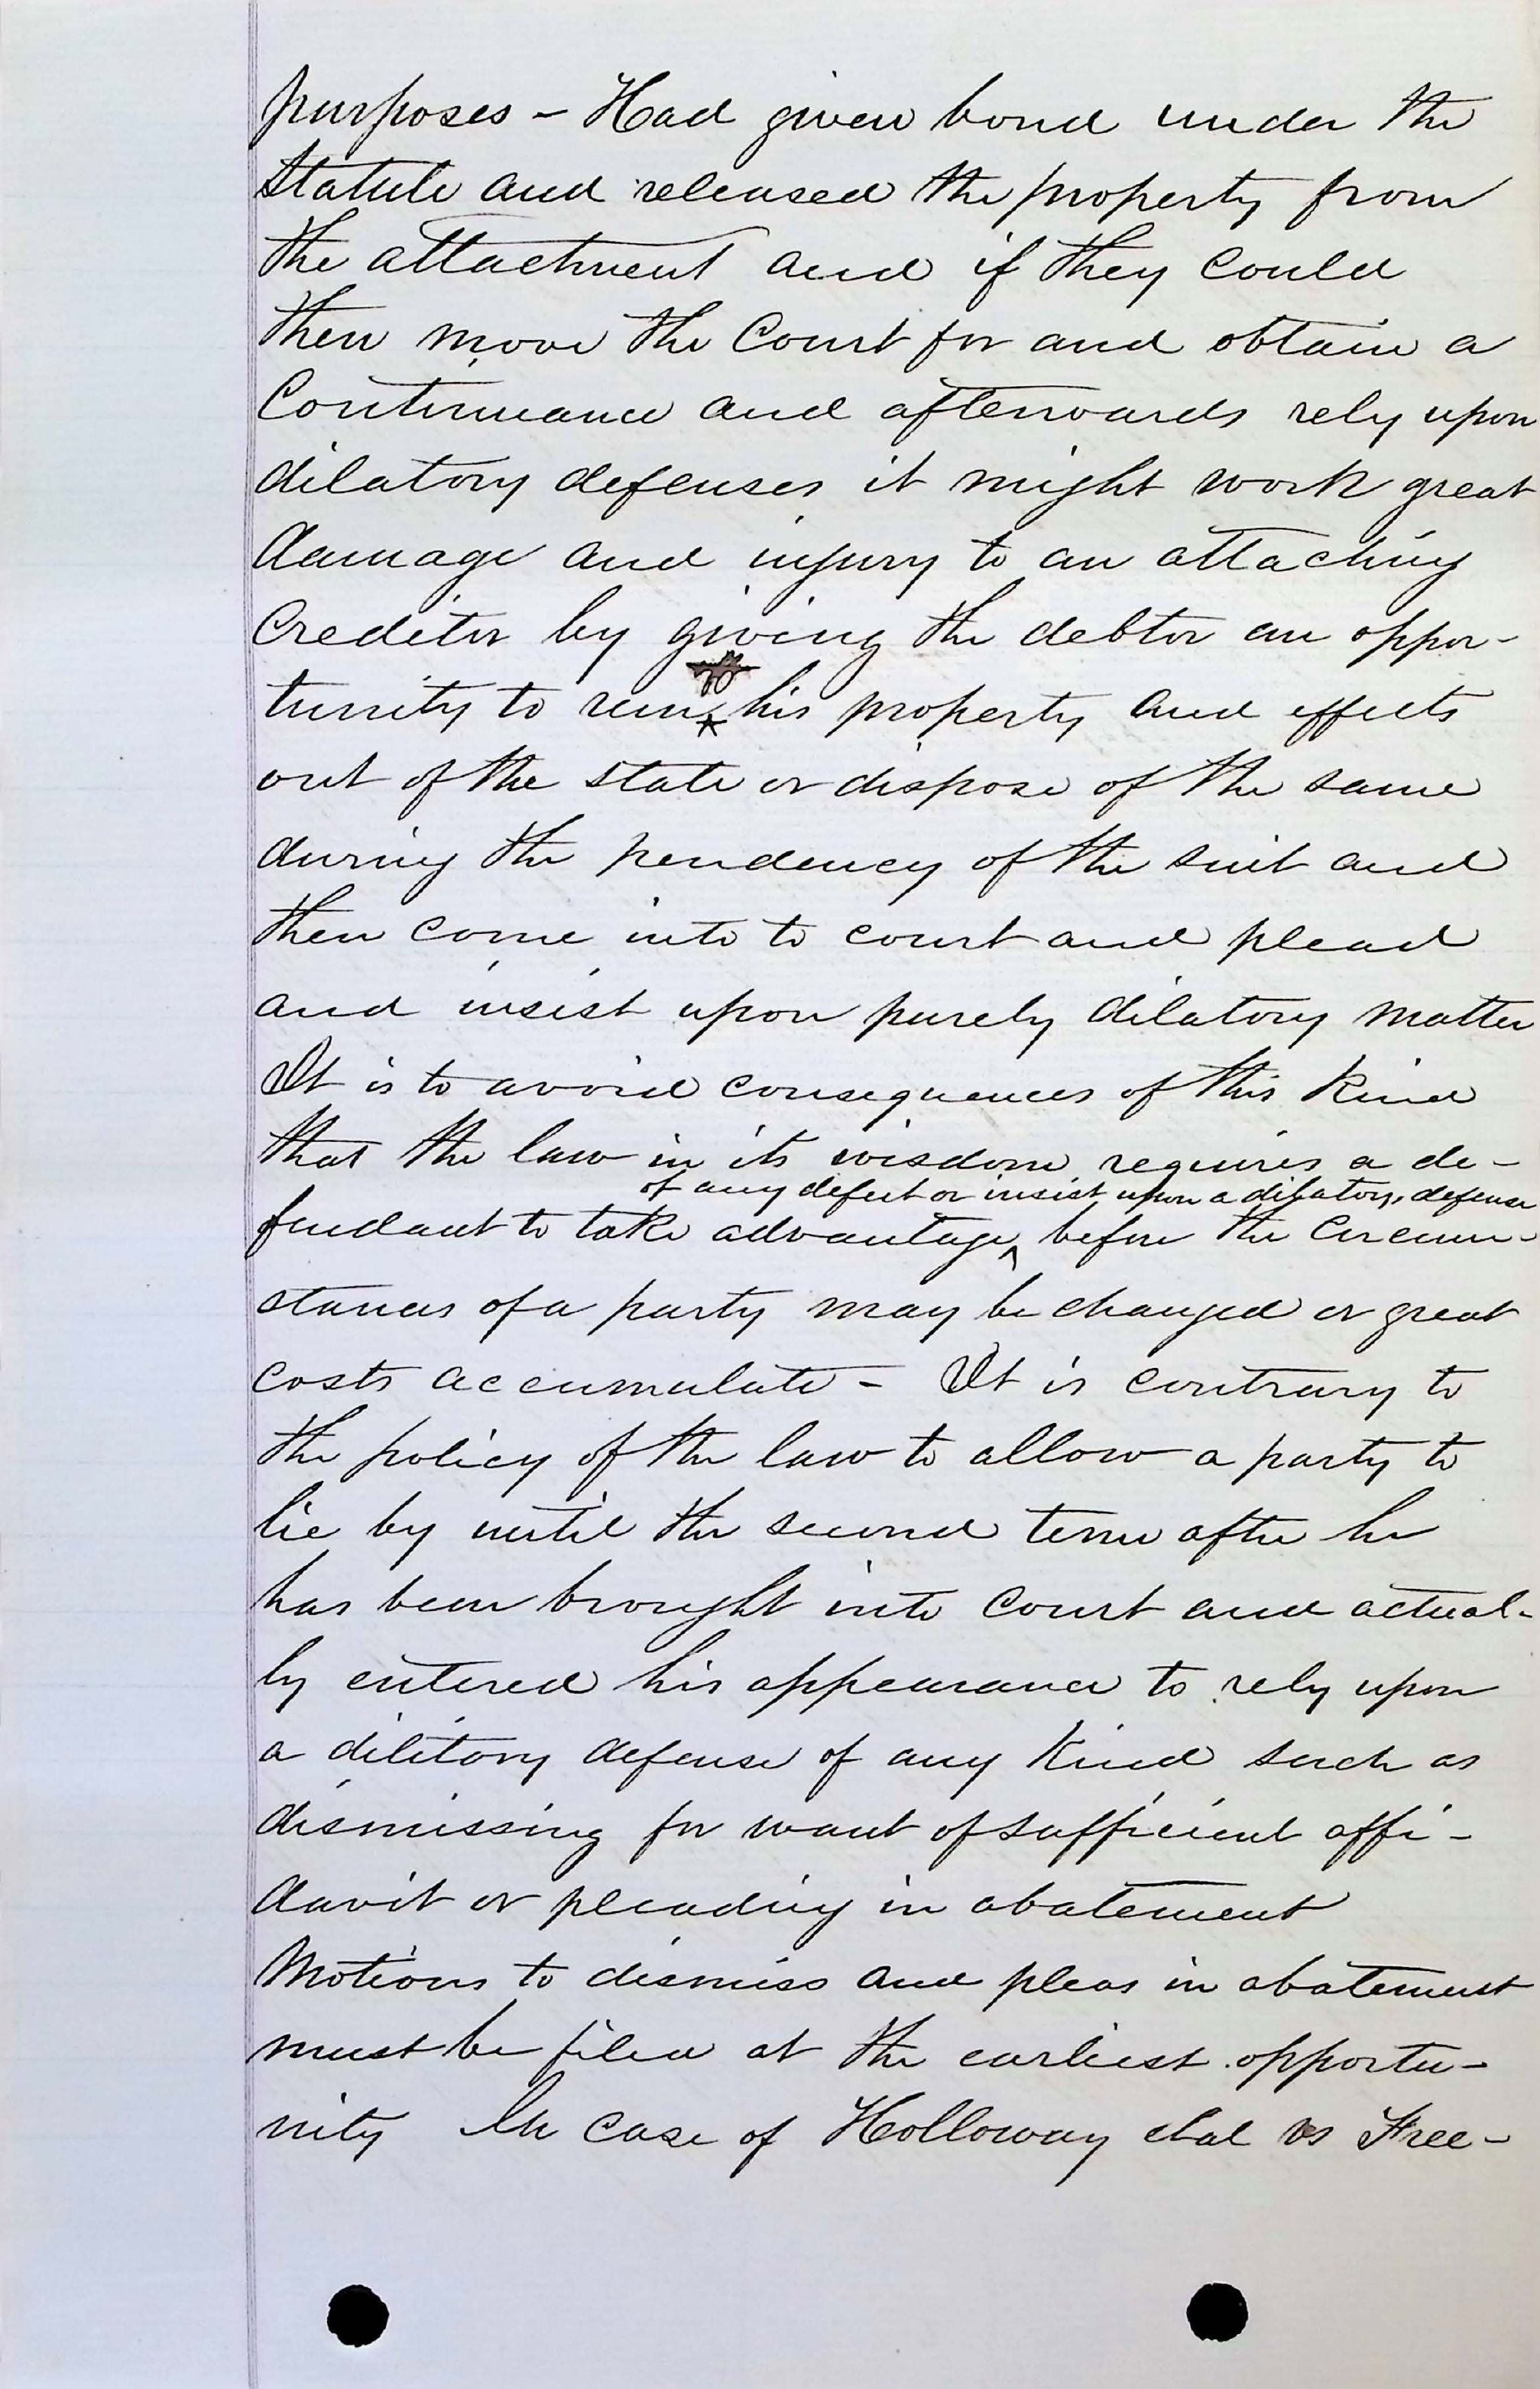 purposes – Had given bond under the
Statute and released the property from
the attachment and if they could
then move the Court for and obtain a
Continuance and afterwards rely upon
dilatory defenses it might work great
damage and injury to an attaching
Creditor by giving the debtor an oppor-
tunity to run his property and effects
out of the state or dispose of the same
during the pendency of the suit and
then come into to court and plead
and insist upon purely dilatory matter
It is to avoid consequences of this kind
that the law in its wisdom requires a de-
of any defect or insist upon a dilatory defense
fendant to take advantage ^ before the Circum-
stances of a party may be changed or great
costs accumulate – It is contrary to
the policy of the law to allow a party to
lie by until the second term after he
has been brought into Court and actual-
ly entered his appearance to rely upon
a dilitory defense of any kind such as
dismissing for want of sufficient affi-
davit or pleading in abatement
Motions to dismiss and pleas in abatement
must be filed at the earliest opportu-
nity In case of Holloway etal vs Free-